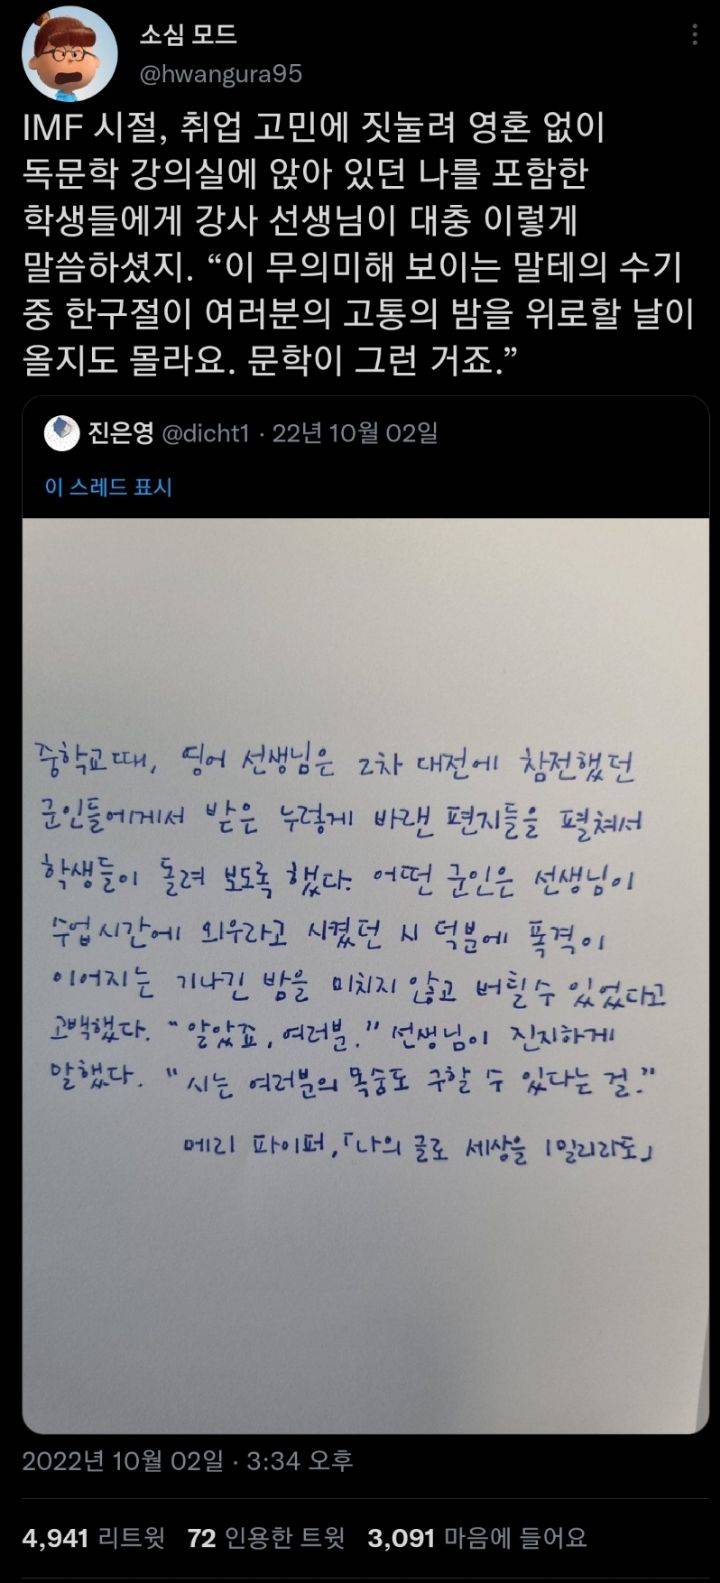 소심 모드
@hwangura95
IMF 시절, 취업 고민에 짓눌려 영혼 없이
독문학 강의실에 앉아 있던 나를 포함한
학생들에게 강사 선생님이 대충 이렇게
말씀하셨지. “이 무의미해 보이는 말테의 수기
중 한구절이 여러분의 고통의 밤을 위로할 날이
올지도 몰라요. 문학이 그런 거죠.”
진은영 @dicht1 · 22년 10월 02일
이 스레드 표시
중학교때, 영어 선생님은 2차 대전에 참전했던
군인들에게서 받은 누렇게 바랜 편지들을 펼쳐서
학생들이 돌려 보도록 했다. 어떤 군인은 선생님이
수업시간에 외우라고 시켰던 시 덕분에 폭격이
이어지는 기나긴 밤을 미치지 않고 버틸수 있었다고
고백했다. “알았죠, 여러분.” 선생님이 진지하게
말했다. “시는 여러분의 목숨도 구할 수 있다는 걸.”
메리 파이퍼,「나의 글로 세상을 1밀리라도」
2022년 10월 02일 · 3:34 오후
4,941 리트윗 72 인용한 트윗 3,091 마음에 들어요